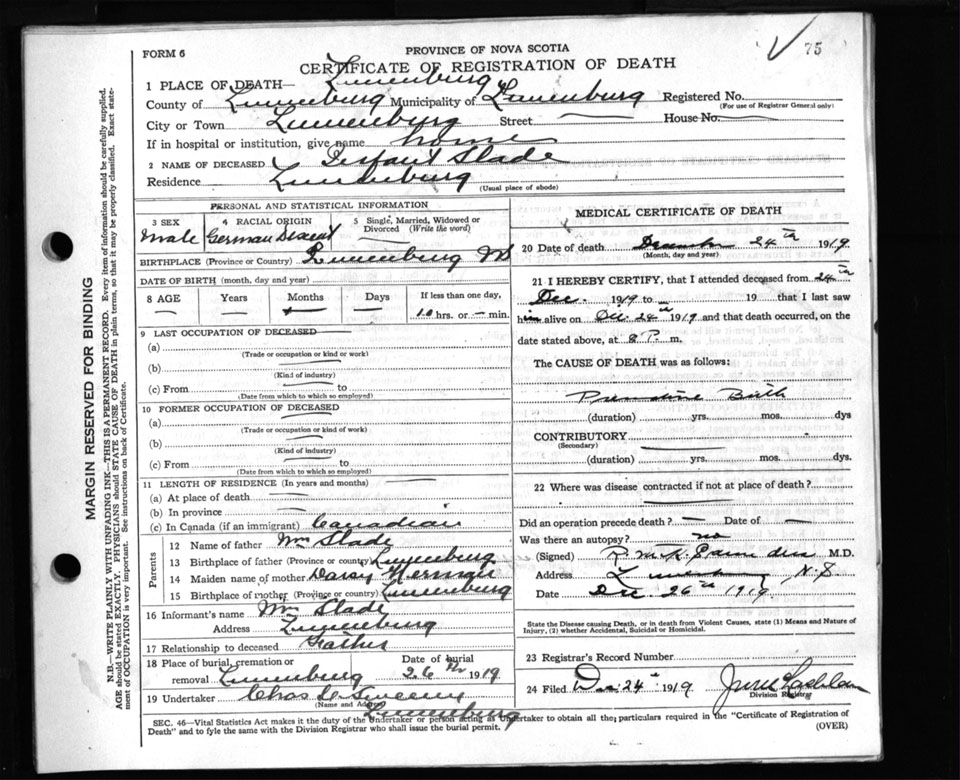 75
FORM 6
PROVINCE OF NOVA SCOTIA
CERTIFICATE OF REGISTRATION OF DEATH
1 PLACE OF DEATH— Lunenburg
County of Lunenburg Municipality of Lunenburg Registered No.
(For use of Registrar General only)
City or Town Lunenburg Street House No.
If in hospital or institution, give name home
2 NAME OF DECEASED Infant Slade
Residence Lunenburg
(Usual place of abode)
PERSONAL AND STATISTICAL INFORMATION
3 SEX 4 RACIAL ORIGIN 5 Single, Married, Widowed or Divorced (Write the word)
Male German Descent
BIRTHPLACE (Province or Country) Lunenburg NS
DATE OF BIRTH (month, day and year)
8 AGE Years Months Days If less than one day,
10 hrs. or — min.
9 LAST OCCUPATION OF DECEASED
(a)
(Trade or occupation or kind or work)
(b)
(Kind of industry)
(c) From to
(Date from which to which so employed)
10 FORMER OCCUPATION OF DECEASED
(a)
(Trade or occupation or kind of work)
(b)
(Kind of industry)
(c) From to
(Date from which to which so employed)
11 LENGTH OF RESIDENCE (In years and months)
(a) At place of death
(b) In province
(c) In Canada (if an immigrant) Canadian
Parents
12 Name of father Wm Slade
13 Birthplace of father (Province or country) Lunenburg
14 Maiden name of mother Daisy Herman
15 Birthplace of mother (Province or country) Lunenburg
16 Informant's name Wm Slade
Address Lunenburg
17 Relationship to deceased Father
18 Place of burial, cremation or removal Lunenburg Date of burial 26th 1919
19 Undertaker Chas Sweeny
(Name and Address) Lunenburg
MEDICAL CERTIFICATE OF DEATH
20 Date of death December 24th 1919
(Month, day and year)
21 I HEREBY CERTIFY, that I attended deceased from 24th
Dec. 1919 to 19 that I last saw
him alive on Dec. 24th 1919 and that death occurred, on
date stated above, at 8 P. m.
The CAUSE OF DEATH was as follows:
Premature Birth
(duration) yrs. mos. dys
CONTRIBUTORY
(Secondary)
(duration) yrs. mos. dys.
22 Where was disease contracted if not at place of death?
Did an operation precede death? — Date of —
Was there an autopsy? no
(Signed) M.D.
Address Lunenburg N.S
Date Dec. 26th 1919
State the Disease causing Death, or in death from Violent Causes, state (1) Means and Nature of
Injury, (2) whether Accidental, Suicidal or Homicidal.
23 Registrar's Record Number
24 Filed Dec 24th 1919
Division Registrar
SEC. 46—Vital Statistics Act makes it the duty of the Undertaker or person acting as Undertaker to obtain all the particulars required in the "Certificate of Registration of
Death" and to fyle the same with the Division Registrar who shall issue the burial permit.
(OVER)
MARGIN RESERVED FOR BINDING
N.B.—WRITE PLAINLY WITH UNFADING INK—THIS IS A PERMANENT RECORD. Every item of information should be carefully supplied.
AGE should be stated EXACTLY. PHYSICIANS should STATE CAUSE OF DEATH in plain terms, so that it may be properly classified. Exact state-
ment of OCCUPATION is very important. See instructions on back of Certificate.